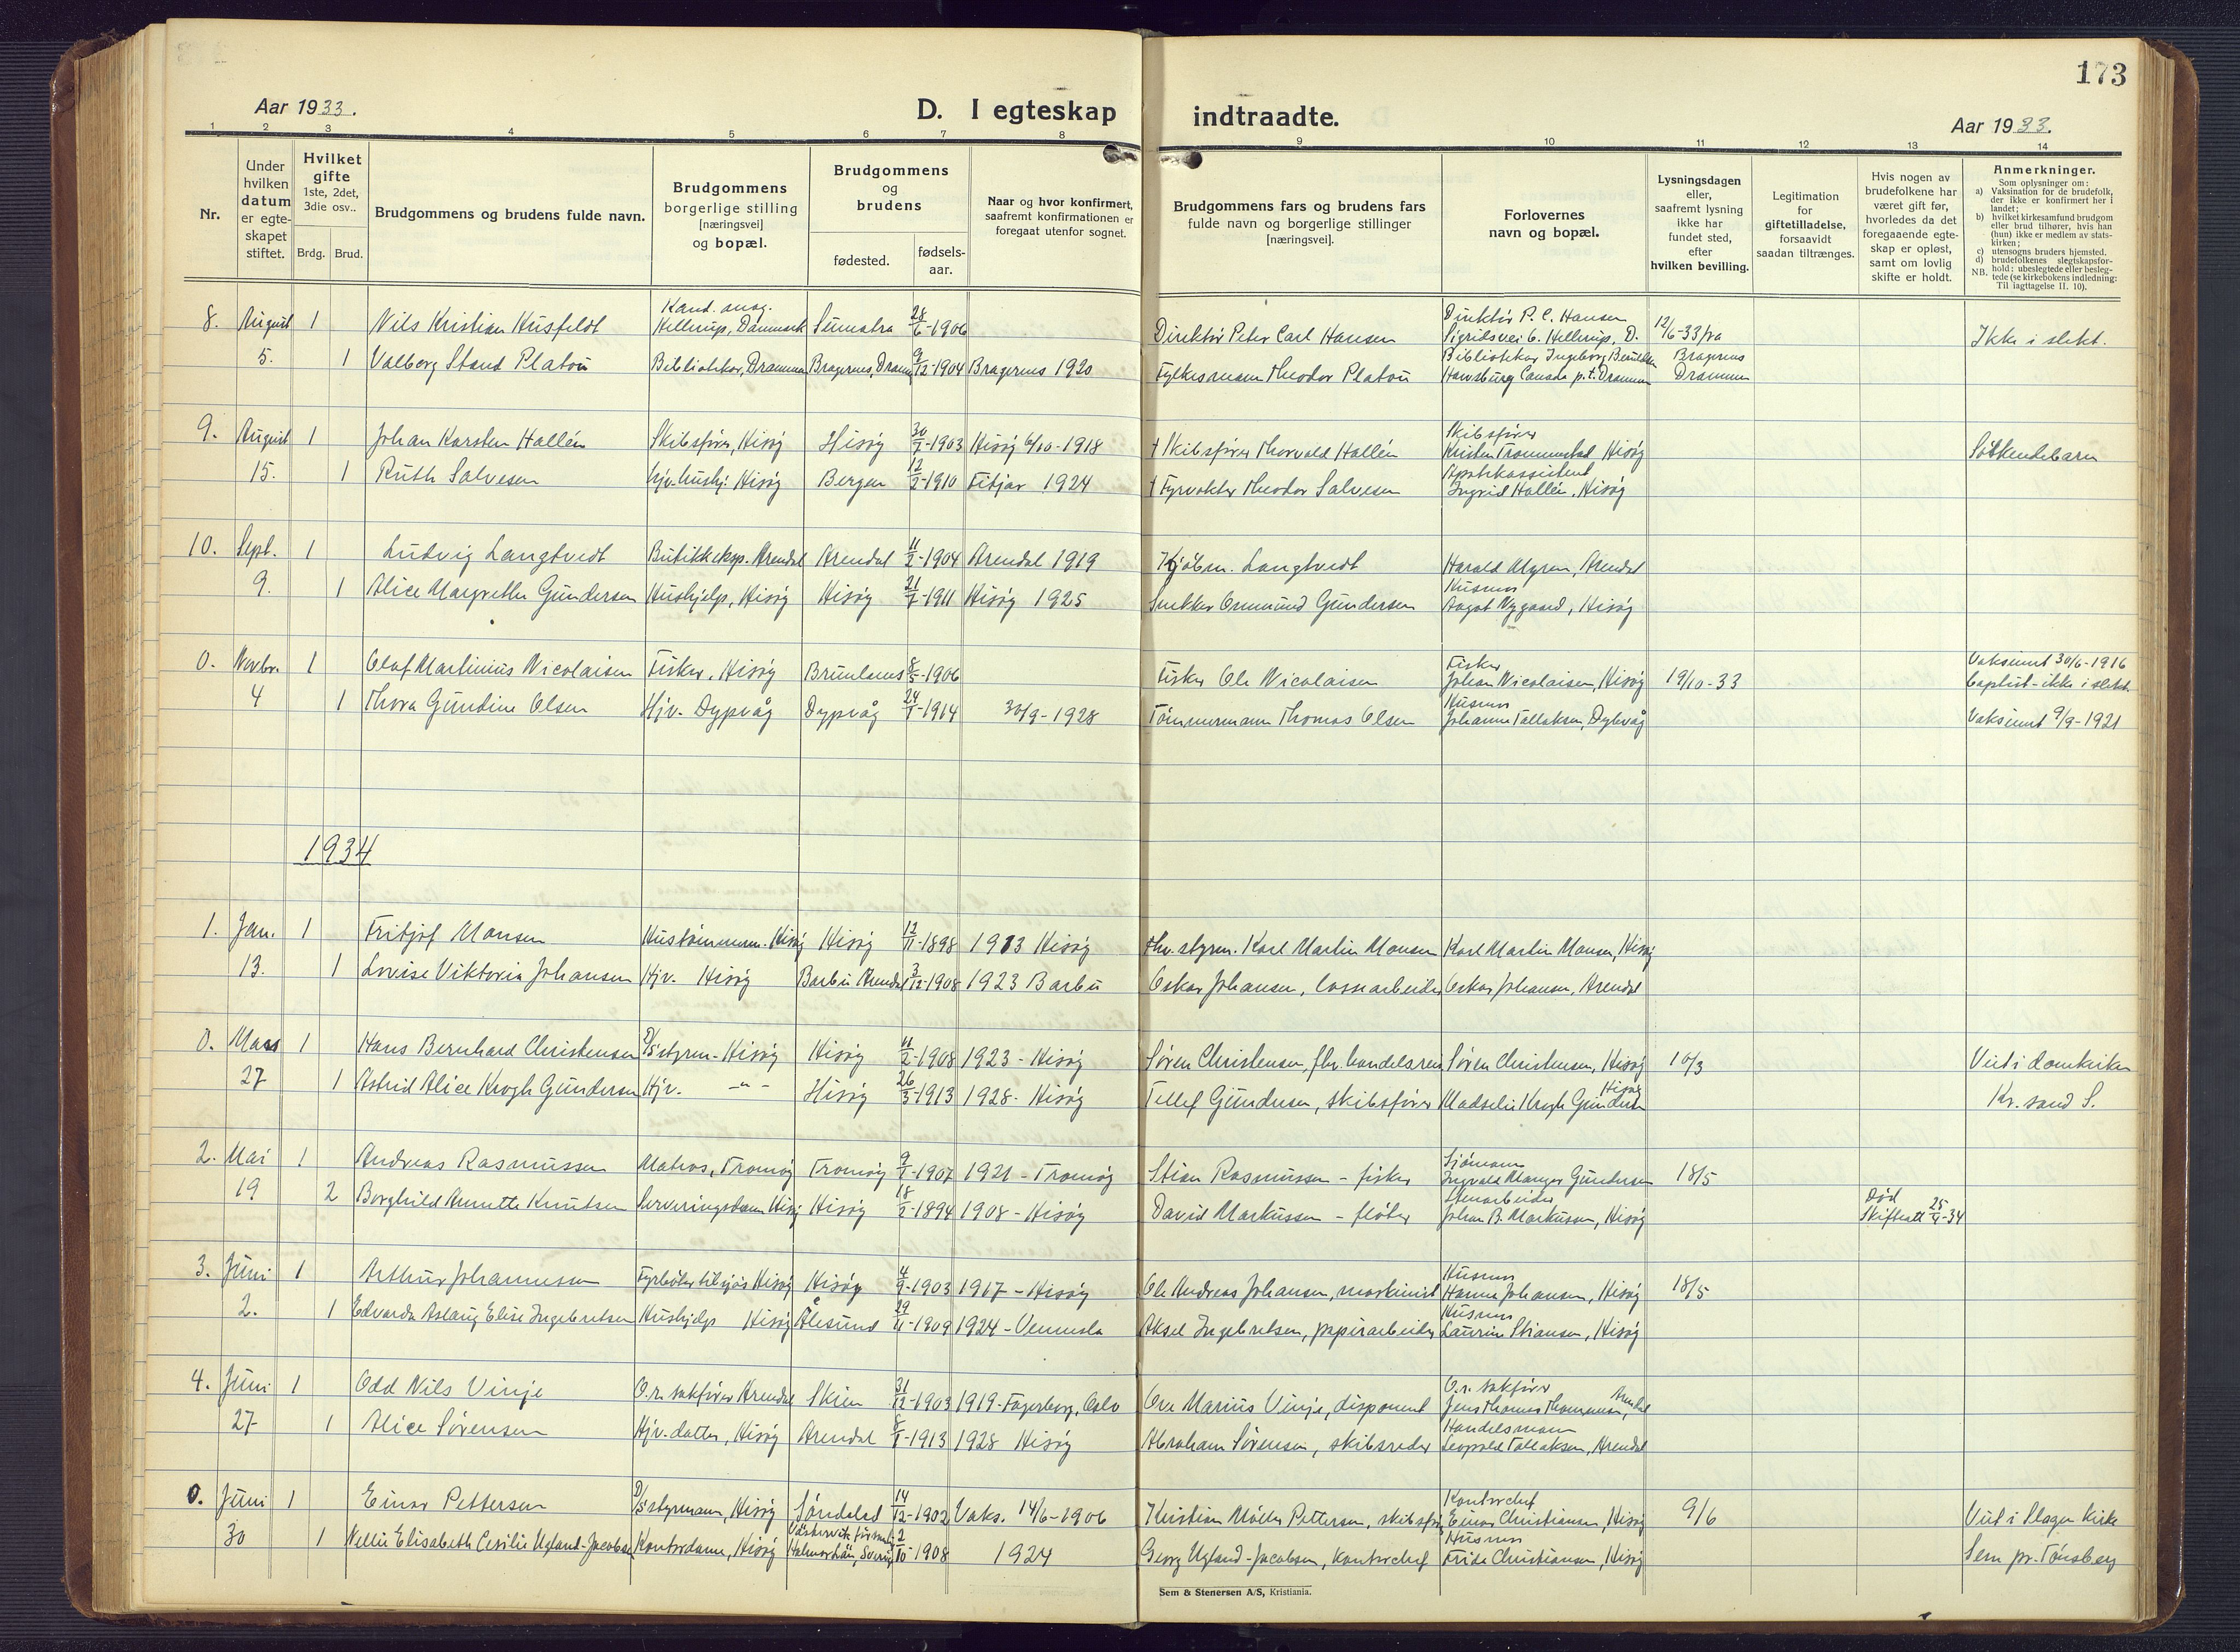 173
Aar 1933.
D. I egteskap indtraadte.
Aar 1933.
1 2 3 4 5 6 7 8 9 10 11 12 13 14
Nr.
Under hvilken datum er egteskapet stiftet.
Hvilket gifte 1ste, 2det, 3die osv..
Brdg. Brud.
Brudgommens og brudens fulde navn.
Brudgommens borgerlige stilling [næringsvei] og bopæl.
Brudgommens og brudens
fødested.
fødsels-aar.
Naar og hvor konfirmert, saafremt konfirmationen er foregaat utenfor sognet.
Brudgommens fars og brudens fars fulde navn og borgerlige stillinger [næringsvei].
Forlovernes navn og bopæl.
Lysningsdagen eller, saafremt lysning ikke har fundet sted, efter hvilken bevilling.
Legitimation for giftetilladelse, forsaavidt saadan tiltrænges.
Hvis nogen av brudefolkene har været gift før, hvorledes da det foregaaende egteskap er opløst, samt om lovlig skifte er holdt.
Anmerkninger.
Som oplysninger om:
a) Vaksination for de brudefolk, der ikke er konfirmert her i landet;
b) hvilket kirkesamfund brudgom eller brud tilhører, hvis han (hun) ikke er medlem av statskirken;
c) utensogns bruders hjemsted.
d) brudefolkenes slegtskapsforhold; ubeslegtede eller beslegtede (se kirkebokens indledning:
NB. Til iagttagelse II. 10).
8. August 1 Nils Kristian Husfeldt Kand. mag. Hellerup, Danmark Sumatra 28/6-1906 Direktör Peter Carl Hansen Direktör P. C. Hansen Sigridsvei 6. Hellerup, D. 12/6-33 fra Ikke i slekt.
5. 1 Valborg Stand Platou Bibliotekar, Drammen Bragernes, Dramm 9/12-1904 Bragernes 1920 Fylkesmann Theodor Platou Bibliotekar Ingeborg Canada p.t. Drammen Bragernes Drammen
9. August 1 Johan Karsten Hallén Skibsfører, Hisøy Hisøy 30/7-1903 Hisøy 6/10-1918 † Skibsfører Thorvald Hallén Skibsfører Kristen Trommestad Hisøy Söskendebarn
15. 1 Ruth Salvesen Hjv. hushj. Hisøy Bergen 12/2-1910 Fitjar 1924 † Fyrvokter Theodor Salvesen Apotekassistent Ingrid Hallén, Hisøy
10. Sept. 1 Ludvig Langtvedt Butikkeksp. Arendal Arendal 11/2-1904 Arendal 1919 Kjöbm. Langtvedt Harald Myren, Arendal
9. 1 Alice Margrethe Gundersen Hushjelp, Hisøy Hisøy 21/7-1911 Hisøy 1925 Snekker Osmund Gundersen Husmor Aagot Nygaard, Hisøy
0. Novbr. 1 Olaf Martinius Nicolaisen Fisker, Hisøy Brunlanes 8/5-1906 Fisker Ole Nicolaisen Fisker Johan Nicolaisen, Hisøy 19/10-33 Vaksinert 30/6-1916 baptist - ikke i slekt
4 1 Thora Gundine Olsen Hjv. Dypvåg Dypvåg 24/1-1914 30/9-1928 Tømmermann Thomas Olsen Husmor Johanne Tallaksen, Dybvåg Vaksinert 9/9-1921
1934
1. Jan. 1 Fritjof Monsen Hustömmerm. Hisøy Hisøy 12/11-1898 1913 Hisøy fhv. styrm. Karl Martin Monsen Karl Martin Monsen, Hisøy
13. 1 Lovise Viktoria Johansen Hjv. Hisøy Barbu Arendal 3/12-1908 1923 Barbu Oskar Johansen, lossearbeider Oskar Johansen, Arendal
0. Mars 1 Hans Bernhard Christensen D/S styrm. - Hisøy Hisøy 11/2-1908 1923 - Hisøy Søren Christensen, fhv. handelsreis Søren Christensen, Hisøy 10/3 Viet i domkirken
27 1 Astrid Alice Krogh Gundersen Hjv. -"- Hisøy 26/3-1913 1928 - Hisøy Tellef Gundersen, skibsfører Madselie Krogh Gundersen Hisøy Kr.sand S.
2. Mai 1 Andreas Rasmussen Matros, Tromøy Tromøy 9/1-1907 1921 - Tromøy Stian Rasmussen - fisker Sjömann Ingvald Gundersen 18/5
19 2 Borghild Annette Knutsen Serveringsdame Hisøy Hisøy 18/2-1894 1908 - Hisøy David Markussen - fløter Stenarbeider Johan B. Markussen, Hisøy Död Skifteatt 25/4-34
3. Juni 1 Arthur Johannessen Fyrbøter tilsjøs Hisøy Hisøy 4/9-1903 1917 - Hisøy Ole Andreas Johansen, maskinist Husmor Hanna Johansen, Hisøy 18/5
2. 1 Edvarda Aslaug Elise Ingebretsen Hushjelp Hisøy Ålesund 29/11-1909 1924 - Vennesla Aksel Ingebretsen, papirarbeider Husmor Laurine Stiansen, Hisøy
4. Juni 1 Odd Nils Vinje O.r. sakfører Arendal Skien 31/12-1903 1919 - Fagerborg, Oslo Ove Marius Vinje, disponent O.r. sakfører Jens Thomas Thommesen, Arendal
27 1 Alice Sørensen Hjv. datter, Hisøy Arendal 8/1-1913 1928 Hisøy Abraham Sørensen, skibsreder Handelsmann Leopold Tallaksen, Arendal
0. Juni 1 Einar Pettersen D/S styrmann, Hisøy Søndeled 14/12-1902 Vaks. 14/6-1906 Kristian Möller Pettersen, skibsfører Kontorchef Einar Christiansen, Hisøy 9/6 Viet i Slagen Kirke
30 1 Nellie Elisabeth Cecilie Ugland-Jacobsen Kontordame, Hisøy Sverig 2/10-1908 1924 Georg Ugland-Jacobsen, kontorchef Husmor Frida Christiansen, Hisøy Sem pr. Tönsberg
Sem & Stenersen A/S, Kristiania.